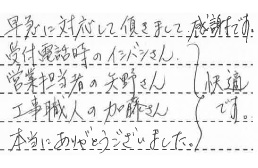 早急に対応して頂きまして感謝です。
受付電話時のイシバシさん
営業担当者の矢野さん
工事職人の加藤さん
快適です。
本当にありがとうございました。